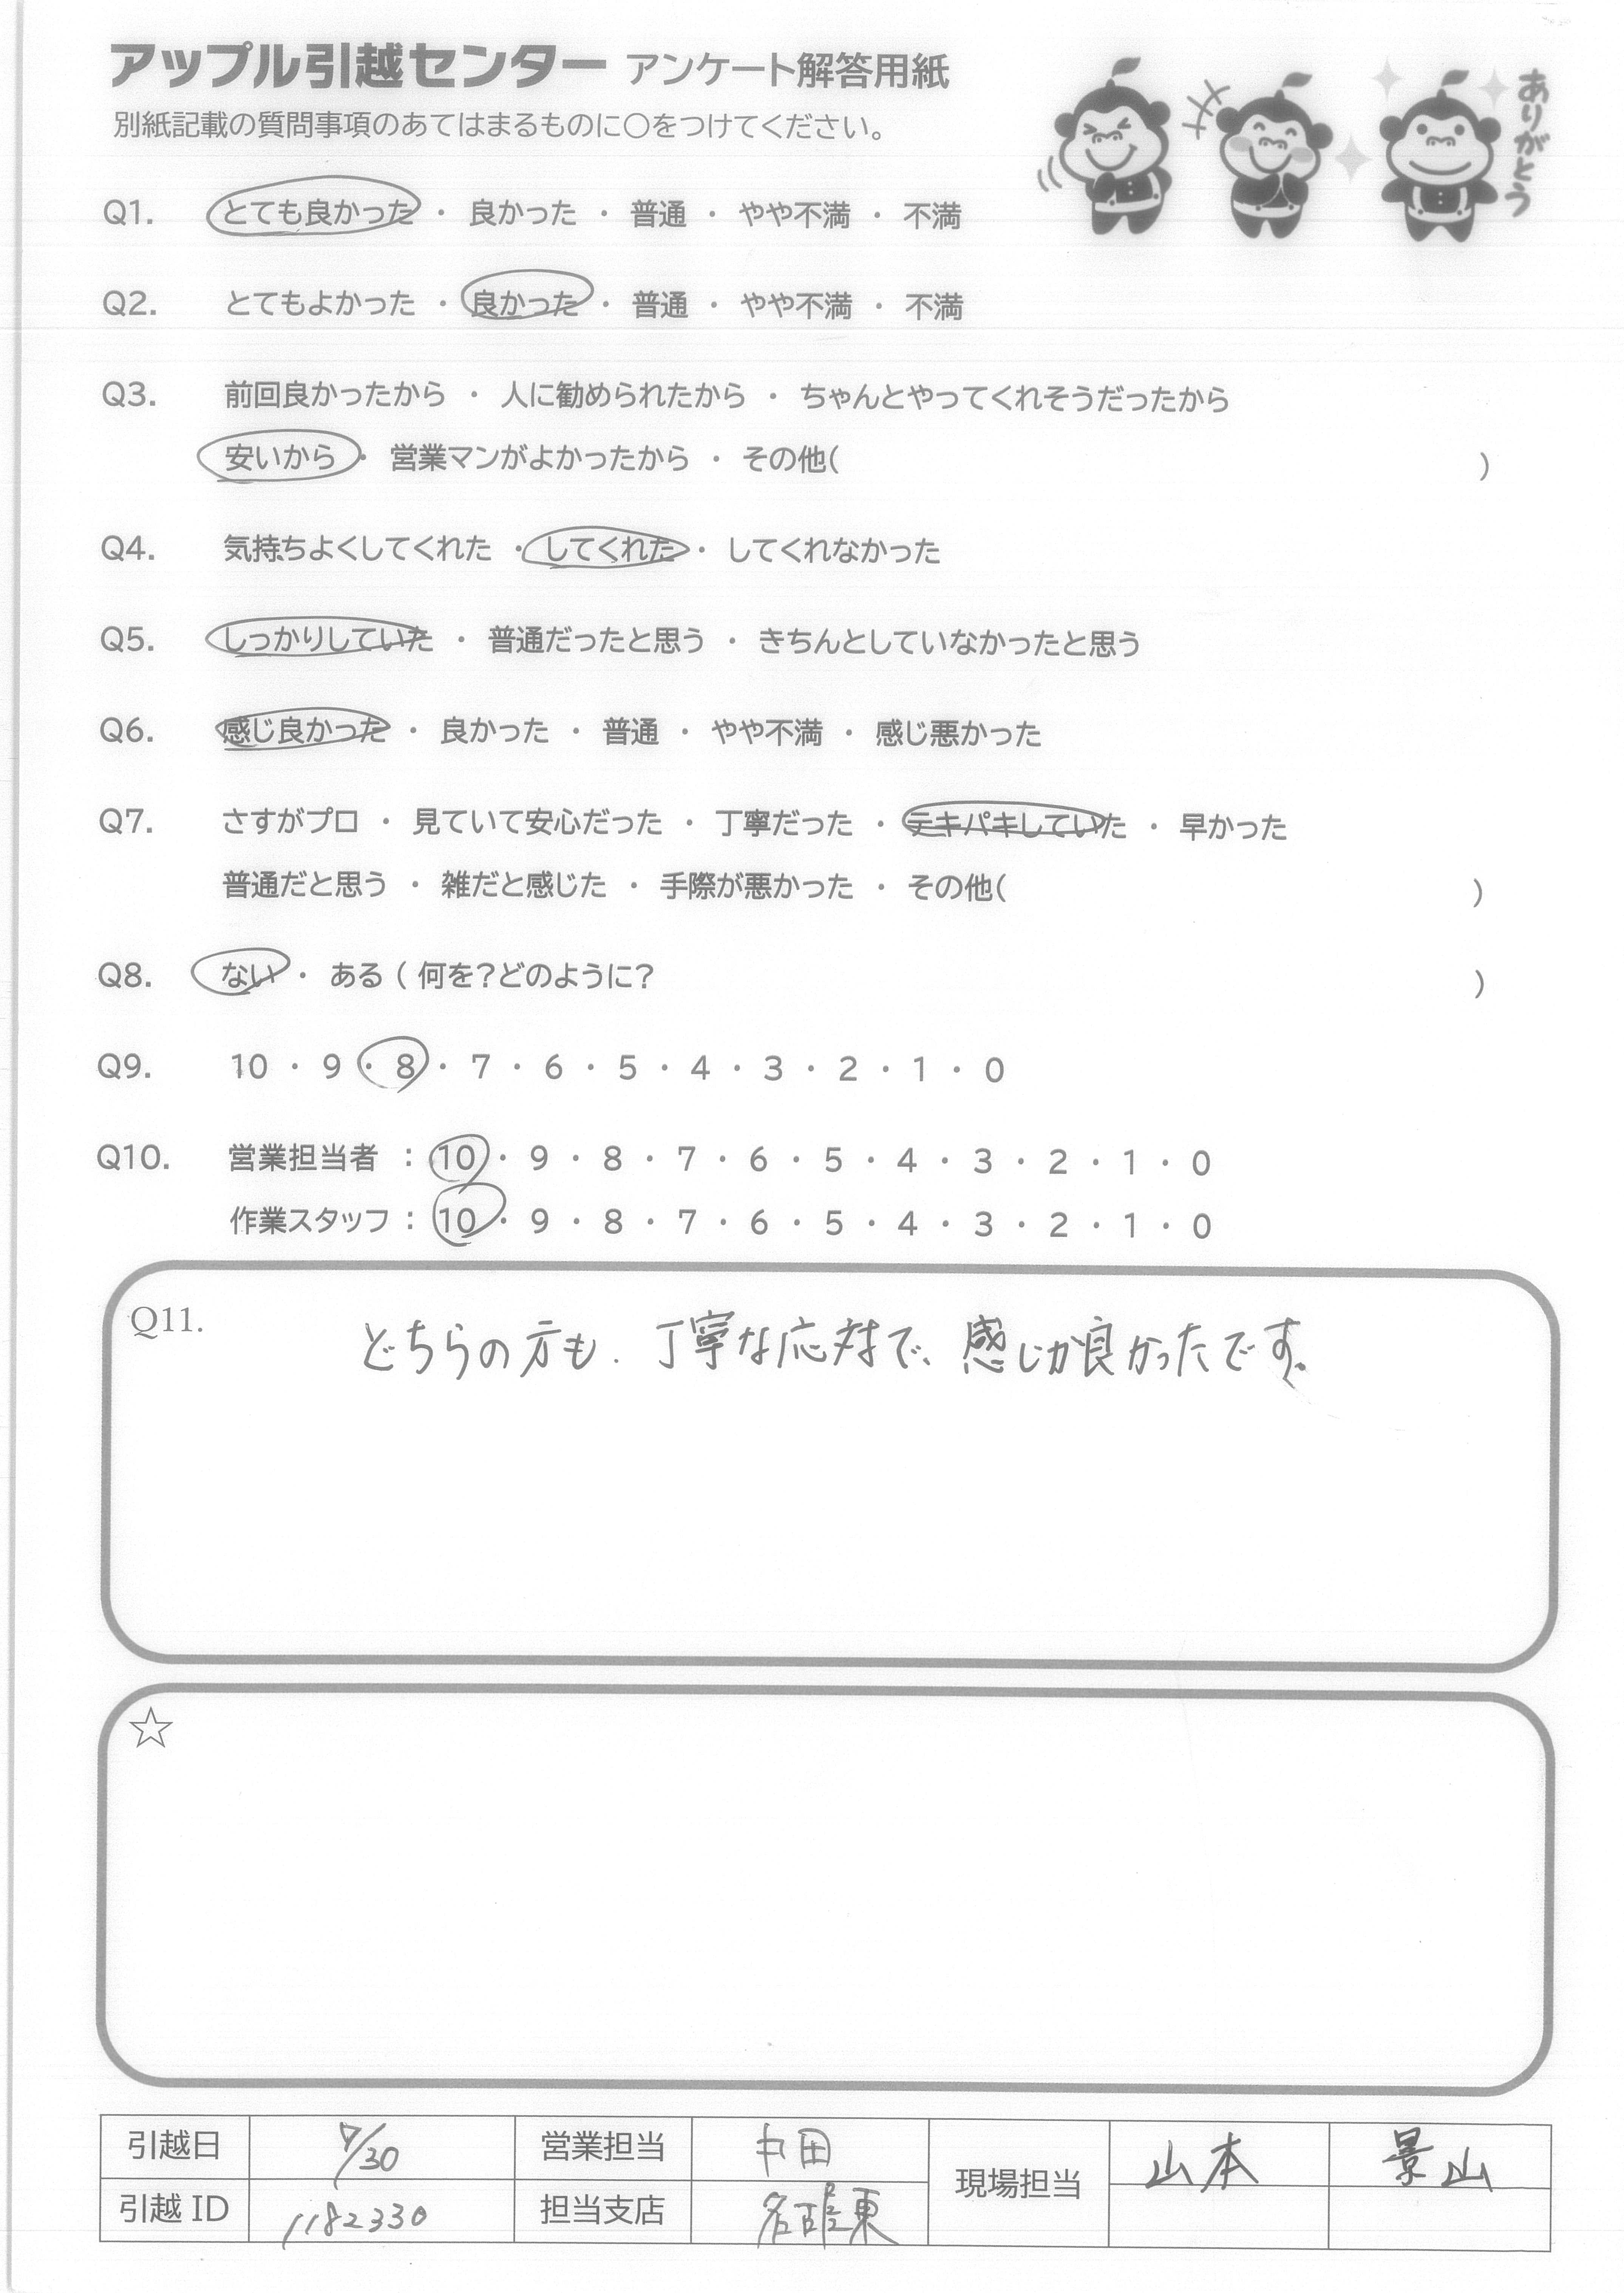 アップル引越センター アンケート解答用紙
ありがとう
別紙記載の質問事項のあてはまるものに○をつけてください。
Q1. とても良かった ・ 良かった ・ 普通 ・ やや不満 ・ 不満
Q2. とてもよかった ・ 良かった ・ 普通 ・ やや不満 ・ 不満
Q3. 前回良かったから ・ 人に勧められたから ・ ちゃんとやってくれそうだったから
安いから ・ 営業マンがよかったから ・ その他( )
Q4. 気持ちよくしてくれた ・ してくれた ・ してくれなかった
Q5. しっかりしていた ・ 普通だったと思う ・ きちんとしていなかったと思う
Q6. 感じ良かった ・ 良かった ・ 普通 ・ やや不満 ・ 感じ悪かった
Q7. さすがプロ ・ 見ていて安心だった ・ 丁寧だった ・ テキパキしていた ・ 早かった
普通だと思う ・ 雑だと感じた ・ 手際が悪かった ・ その他( )
Q8. ない ・ ある ( 何を?どのように? )
Q9. 10 ・ 9 ・ 8 ・ 7 ・ 6 ・ 5 ・ 4 ・ 3 ・ 2 ・ 1 ・ 0
Q10. 営業担当者 : 10 ・ 9 ・ 8 ・ 7 ・ 6 ・ 5 ・ 4 ・ 3 ・ 2 ・ 1 ・ 0
作業スタッフ : 10 ・ 9 ・ 8 ・ 7 ・ 6 ・ 5 ・ 4 ・ 3 ・ 2 ・ 1 ・ 0
Q11. どちらの方も、丁寧な応対で、感じが良かったです。
☆
引越日 7/30 営業担当 中田 現場担当 山本 景山
引越 ID 1182330 担当支店 名古屋東